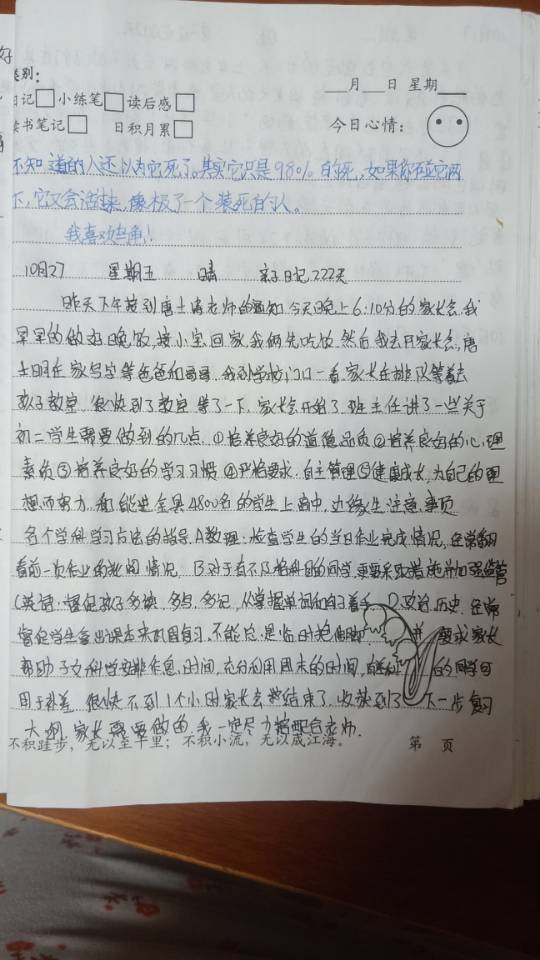 好
类别：
日记□ 小练笔□ 读后感□
___月___日 星期___
读书笔记□ 日积月累□
今日心情：
不知道的人还以为它死了。其实它只是98%的死，如果你在碰它两
下，它又会活过来，像极了一个装死的人。
我喜欢 角！
10月27 星期五 晴 亲子日记222天
昨天下午接到唐土 老师的通知今天晚上6:10分的家长会，我
早早的做好晚饭，接小宝回家，我俩先吃饭，然后我去开家长会，唐
土 在家写字等爸爸和哥哥，我到学校门口一看，家长在排队等着去
孩子教室，很快到了教室等了一下，家长会开始了，班主任讲了一些关于
初二学生需要做到的几点，①培养良好的道德品质②培养良好的心理
素质③培养良好的学习习惯④严格要求，自主管理⑤健康成长，为自己的理
想而努力，和能进全县4800名的学生上高中，边缘生注意事项
各个学科学习方法的指导，A数理：检查学生的当日作业完成情况，经常翻
看前一次作业的批阅情况，B对于有不及格科目的同学，更要采取措施并加强监管
C英语：督促孩子多读，多写，多记，从掌握单词和句子着手，D政治，历史，经常
督促学生拿出课本来巩固复习，不能总是临时抱佛脚 并要求家长
帮助子女科学安排作息，时间，充分利用周末的时间， 的同学可
用于补差，很快不到1个小时家长会就结束了，收获到了 下一步复习
大纲，家长需要做的，我一定尽力 配合老师．
不积跬步，无以至千里；不积小流，无以成江海。 第 页